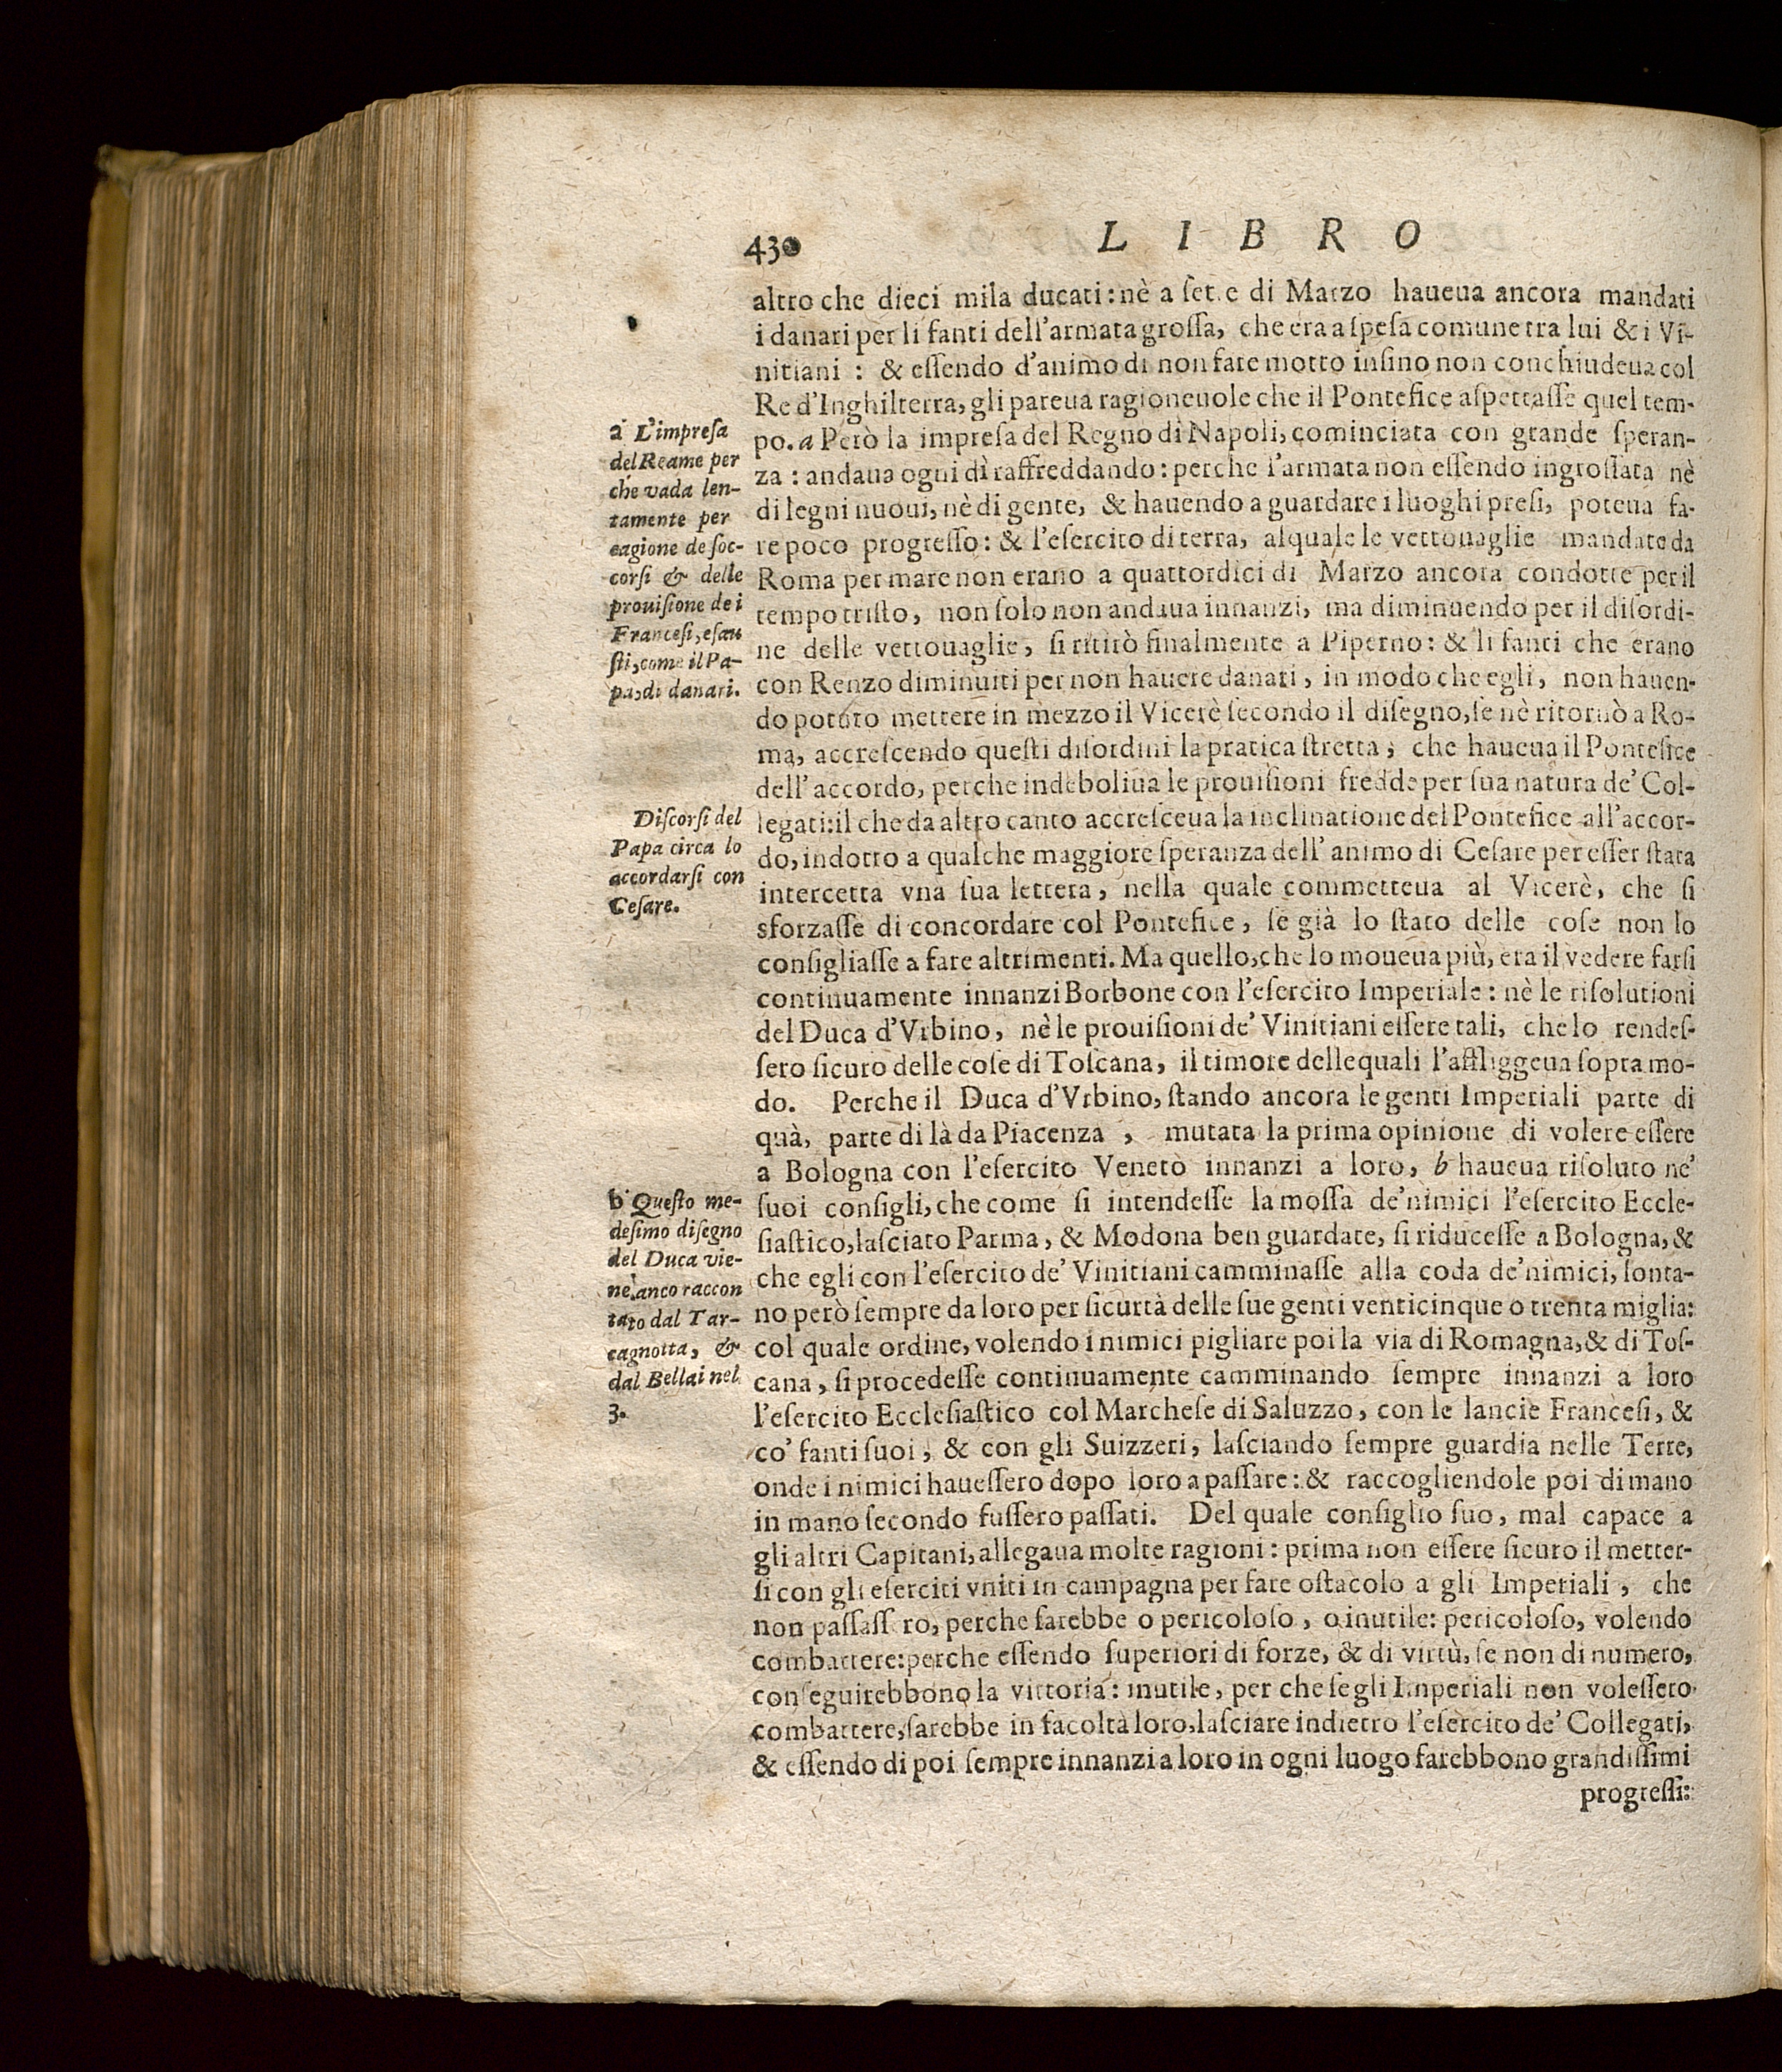 430
L I B R O
altro che dieci mila ducati: nè a ſet.e di Marzo haueua ancora mandati
i danari per li fanti dell'armata groſſa, che era a ſpeſa comune tra lui & i Vi-
nitiani : & eſſendo d'animo di non fare motto inſino non conchiudeua col
Re d'Inghilterra, gli pareua ragioneuole che il Pontefice aſpettaſſe quel tem-
po. a Però la impreſa del Regno di Napoli, cominciata con grande ſperan-
za : andaua ogni dì raffreddando : perche l'armata non eſſendo ingroſſata nè
di legni nuoui, nè di gente, & hauendo a guardare i luoghi preſi, poteua fa-
re poco progreſſo: & l'eſercito di terra, al quale le vettouaglie mandate da
Roma per mare non erano a quattordici di Marzo ancora condotte per il
tempo triſto, non ſolo non andaua innanzi, ma diminuendo per il diſordi-
ne delle vettouaglie, ſi ritirò finalmente a Piperno: & li fanti che erano
con Renzo diminuiti per non hauere danari, in modo che egli, non hauen-
do potuto mettere in mezzo il Vicerè ſecondo il diſegno, ſe nè ritornò a Ro-
ma, accreſcendo queſti diſordini la pratica ſtretta, che haueua il Pontefice
dell'accordo, perche indeboliua le prouiſioni fredde per ſua natura de' Col-
legati: il che da altro canto accreſceua la inclinatione del Pontefice all'accor-
do, indotto a qualche maggiore ſperanza dell'animo di Ceſare per eſſer ſtata
intercetta vna ſua lettera, nella quale commetteua al Vicerè, che ſi
sforzaſſe di concordare col Pontefice, ſe già lo ſtato delle coſe non lo
conſigliaſſe a fare altrimenti. Ma quello, che lo moueua più, era il vedere farſi
continuamente innanzi Borbone con l'eſercito Imperiale : nè le riſolutioni
del Duca d'Vrbino, nè le prouiſioni de' Vinitiani eſſere tali, che lo rendeſ-
ſero ſicuro delle coſe di Toſcana, il timore delle quali l'affliggeua ſopra mo-
do. Perche il Duca d'Vrbino, ſtando ancora le genti Imperiali parte di
quà, parte di là da Piacenza , mutata la prima opinione di volere eſſere
a Bologna con l'eſercito Venetò innanzi a loro, b haueua riſoluto ne'
ſuoi conſigli, che come ſi intendeſſe la moſſa de'nimici l'eſercito Eccle-
ſiaſtico, laſciato Parma, & Modona ben guardate, ſi riduceſſe a Bologna, &
che egli con l'eſercito de' Vinitiani camminaſſe alla coda de'nimici, lonta-
no però ſempre da loro per ſicurtà delle ſue genti venticinque o trenta miglia:
col quale ordine, volendo i nimici pigliare poi la via di Romagna, & di Toſ-
cana, ſi procedeſſe continuamente camminando ſempre innanzi a loro
l'eſercito Eccleſiaſtico col Marcheſe di Saluzzo, con le lancie Franceſi, &
co' fanti ſuoi, & con gli Suizzeri, laſciando ſempre guardia nelle Terre,
onde i nimici haueſſero dopo loro a paſſare: & raccogliendole poi di mano
in mano ſecondo fuſſero paſſati. Del quale conſiglio ſuo, mal capace a
gli altri Capitani, allegaua molte ragioni : prima non eſſere ſicuro il metter-
ſi con gli eſerciti vniti in campagna per fare oſtacolo a gli Imperiali , che
non paſſaſſero, perche ſarebbe o pericoloſo , o inutile: pericoloſo, volendo
combattere: perche eſſendo ſuperiori di forze, & di virtù, ſe non di numero,
conſeguirebbono la vittoria : inutile, per che ſe gli Imperiali non voleſſero
combattere, ſarebbe in facoltà loro, laſciare indietro l'eſercito de' Collegati,
& eſſendo di poi ſempre innanzi a loro in ogni luogo farebbono grandiſſimi
progreſſi:
a L'impreſa
del Reame per
che vada len-
tamente per
cagione de ſoc-
corſi & delle
prouiſione de i
Franceſi, eſau
ſti, come il Pa-
pa, di danari.
Diſcorſi del
Papa circa lo
accordarſi con
Ceſare.
b Queſto me-
deſimo diſegno
del Duca vie-
nè anco raccon
tato dal Tar-
cagnotta, &
dal Bellai nel
3.